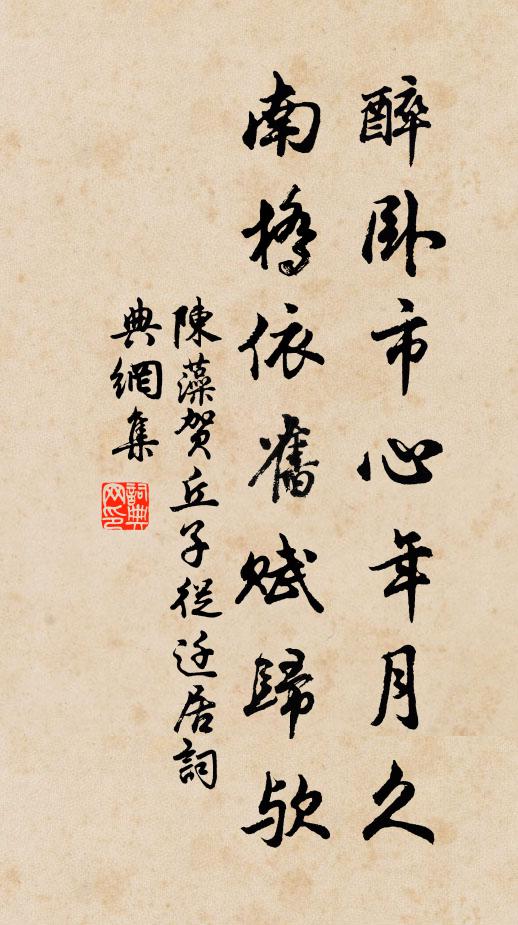 醉卧市心年月久
南橋依舊賦歸欤
陳藻賀丘子從迁居詞
典網集
詞典
网印